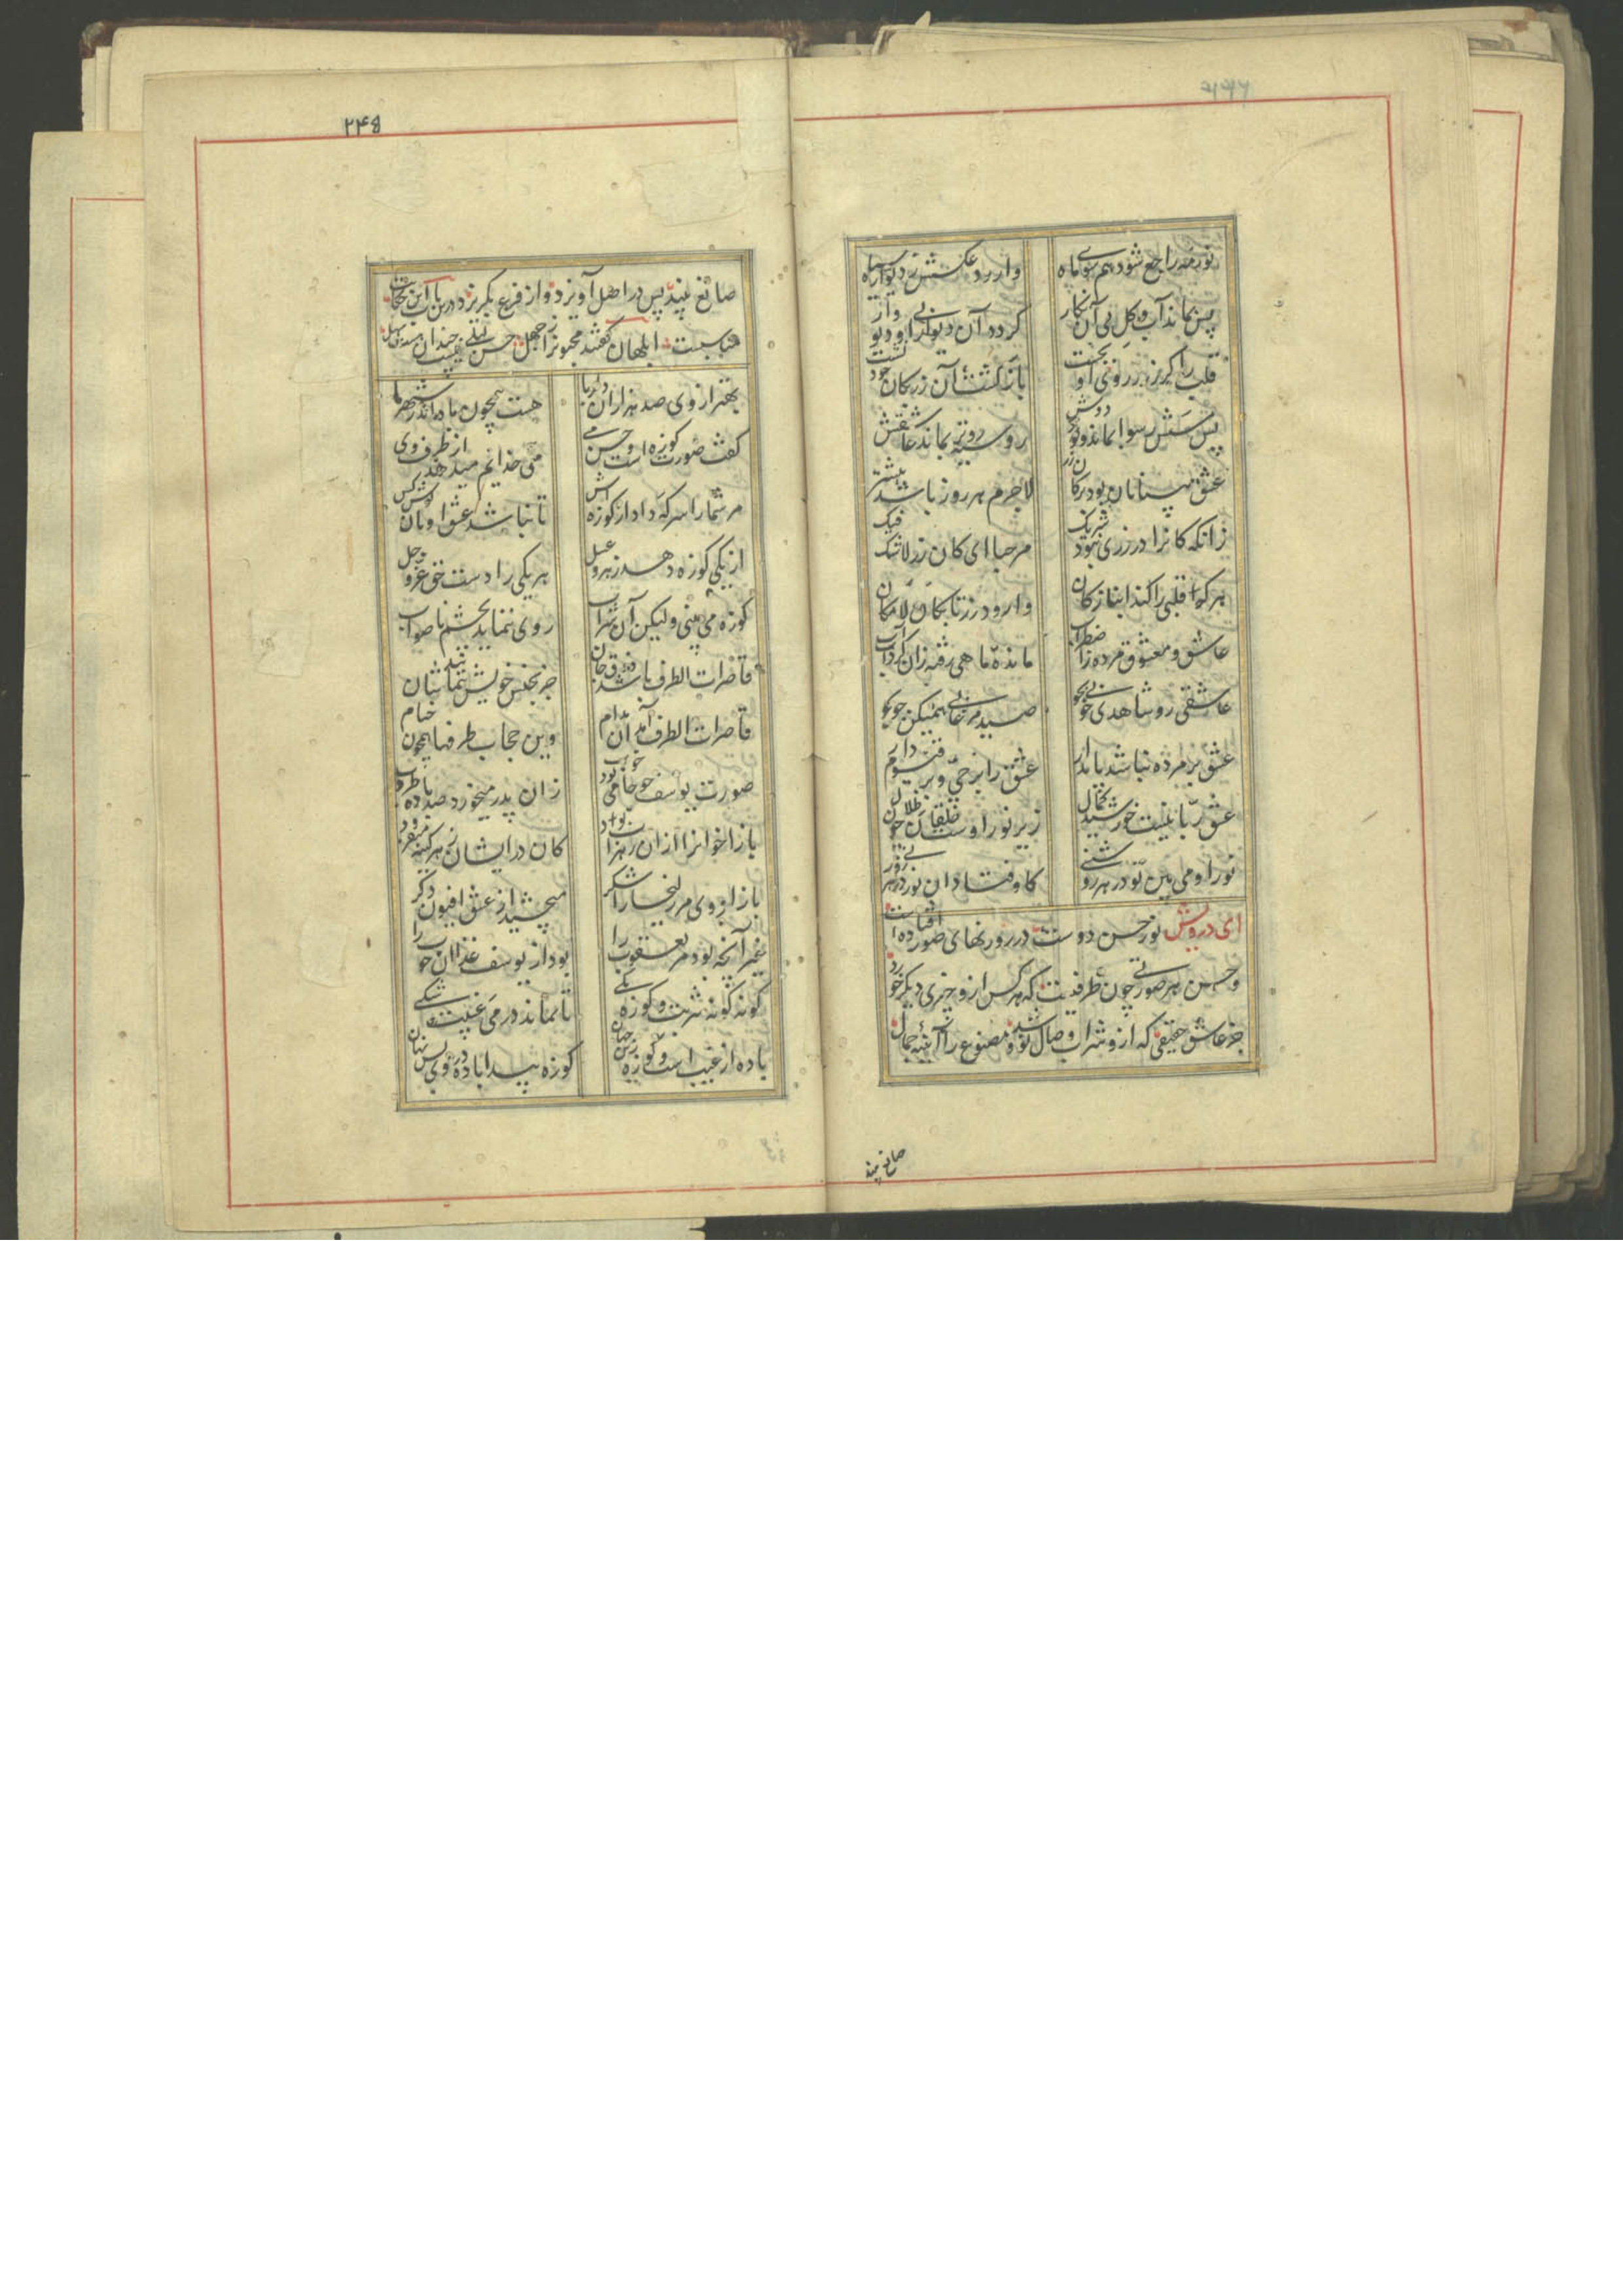 نور مه راجع شود هم سوی ماه
وارود عکسش ز دیوار سیاه
پس بماند آب و گل بی آن نگار
گردد آن دیوار بی او دیووار
قلب را کز زر ز روی او بجست
بازگشت آن زر بکان خود نشست
پس مس رسوا بماند دودوش
روسیه‌تر بماند عاشقش
عشق بینایان بود بر کان زر
لاجرم هر روز باشد بیشتر
زانکه کانرا در زری نبود شریک
مرحبا ای کان زر لاشک فیک
هر که قلبی را کند انباز کان
وارود زر تا بکان لامکان
عاشق و معشوق مرده ز اضطراب
مانده ماهی رفته زان گرداب آب
عاشقی رو شاهدی خوبی بجو
صید مرغابی همیکن جو بجو
عشق بر مرده نباشد پایدار
عشق را بر حی و بر قیوم دار
عشق ربانیست خورشید کمال
زیر نور اوست خلقان چون ظلال
نور او می بین تو در هر روشنی
کاوفتاد آن نور در هر روزنی
ای درویش نور حسن دوست در روزنهای صور افتاده است
و حسن هر صورتی چون ظرفیست که هر کس ازو چیزی دیگر خورد
جز عاشق حقیقی که از و شراب وصال نوشد و مصنوع را آئینه جمال
صانع بیند
۲۴۵
صانع بیند پس در اصل آویزد و از فرع بگریزد و درین باب این حکایت
مناسبست ابلهان گفتند مجنون را ز جهل حسن لیلی نیست چندان هست سهل
بهتر از وی صد هزاران دلربا
هست همچون ماه اندر شهر ما
گفت صورت کوزه است و حسن می
می خدایم میدهد از ظرف وی
مر شما را سرکه داد از کوزه‌اش
تا نباشد عشق او تان گوش کش
از یکی کوزه دهد زهر و عسل
هر یکی را دست حق عز و جل
کوزه می بینی ولیکن آن شراب
روی ننماید بچشم ناصواب
قاصرات الطرف باشد ذوق جان
جز بجنس خویش ننماید نشان
قاصرات الطرف آمد آن مدام
وین حجاب ظرفها همچون خیام
صورت یوسف چو جامی بود خوب
زان پدر میخورد صد باده طروب
باز اخوانرا ازان زهراب بود
کان در ایشان زهر کینه میفزود
باز از وی مر زلیخا را شکر
میچشید از عشق افیون دگر
غیر آنچه بود مر یعقوب را
بود از یوسف غذا آن خوب را
گونه گونه شربت و کوزه یکی
تا نماند در می غیبت شکی
باده از غیب است و کوزه زین جهان
کوزه پیدا باده در وی بس نهان